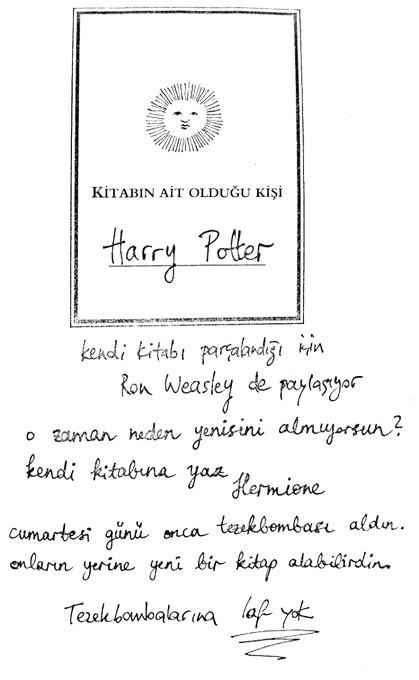 KİTABIN AİT OLDUĞU KİŞİ
Harry Potter
kendi kitabı parçalandığı için
Ron Weasley de paylaşıyor
o zaman neden yenisini almıyorsun?
kendi kitabına yaz
Hermione
cumartesi günü onca tezekbombası aldın.
onların yerine yeni bir kitap alabilirdin.
Tezekbombalarına laf yok